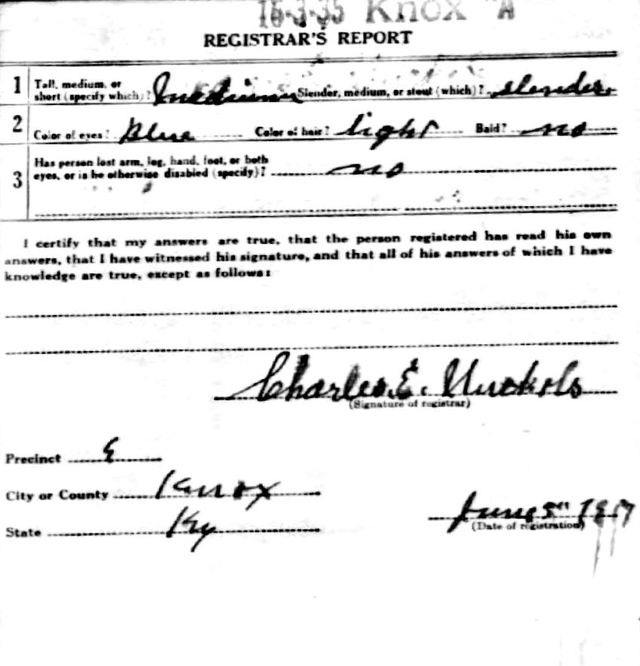 16-3-35 Knox "A
REGISTRAR'S REPORT
1 Tall, medium, or short (specify which)? Medium Slender, medium, or stout (which)? slender
2 Color of eyes? Blue Color of hair? light Bald? no
3 Has person lost arm, leg, hand, foot, or both eyes, or is he otherwise disabled (specify)? no
I certify that my answers are true, that the person registered has read his own
answers, that I have witnessed his signature, and that all of his answers of which I have
knowledge are true, except as follows:
Charles E. Nuckols
(Signature of registrar)
Precinct E
City or County Knox
State Ky
June 5" 1917
(Date of registration)